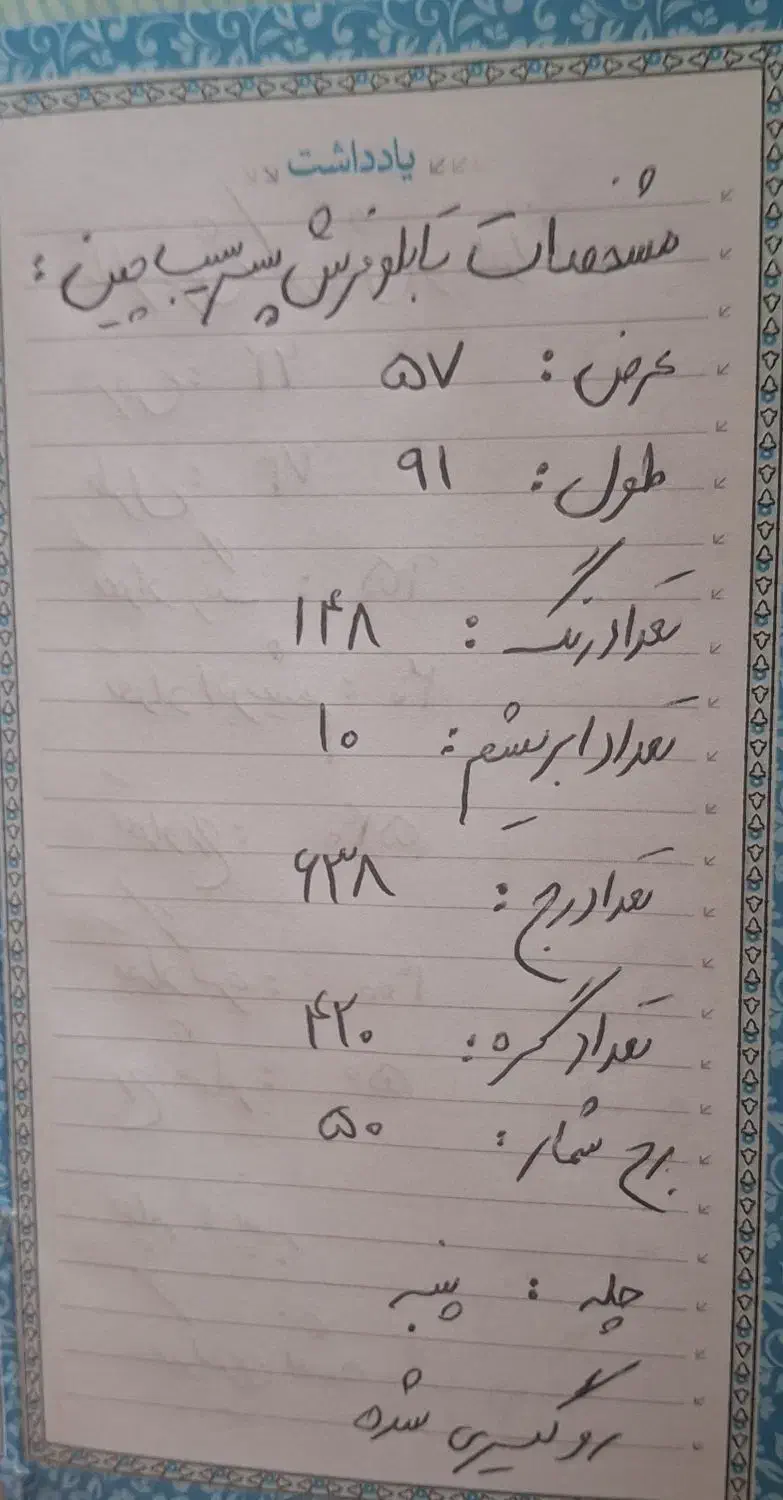 یادداشت
مشخصات تابلو فرش پسر سیب چین :
عرض : ۵۷
طول : ۹۱
تعداد رنگ : ۱۴۸
تعداد ابریشم : ۱۰
تعداد رج : ۶۳۸
تعداد گره : ۴۲۰
رج شمار : ۵۰
چله : پنبه
روگیری شده